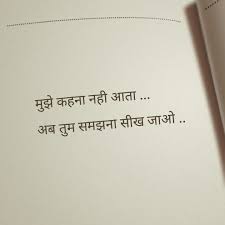 मुझे कहना नही आता ...
अब तुम समझना सीख जाओ ..